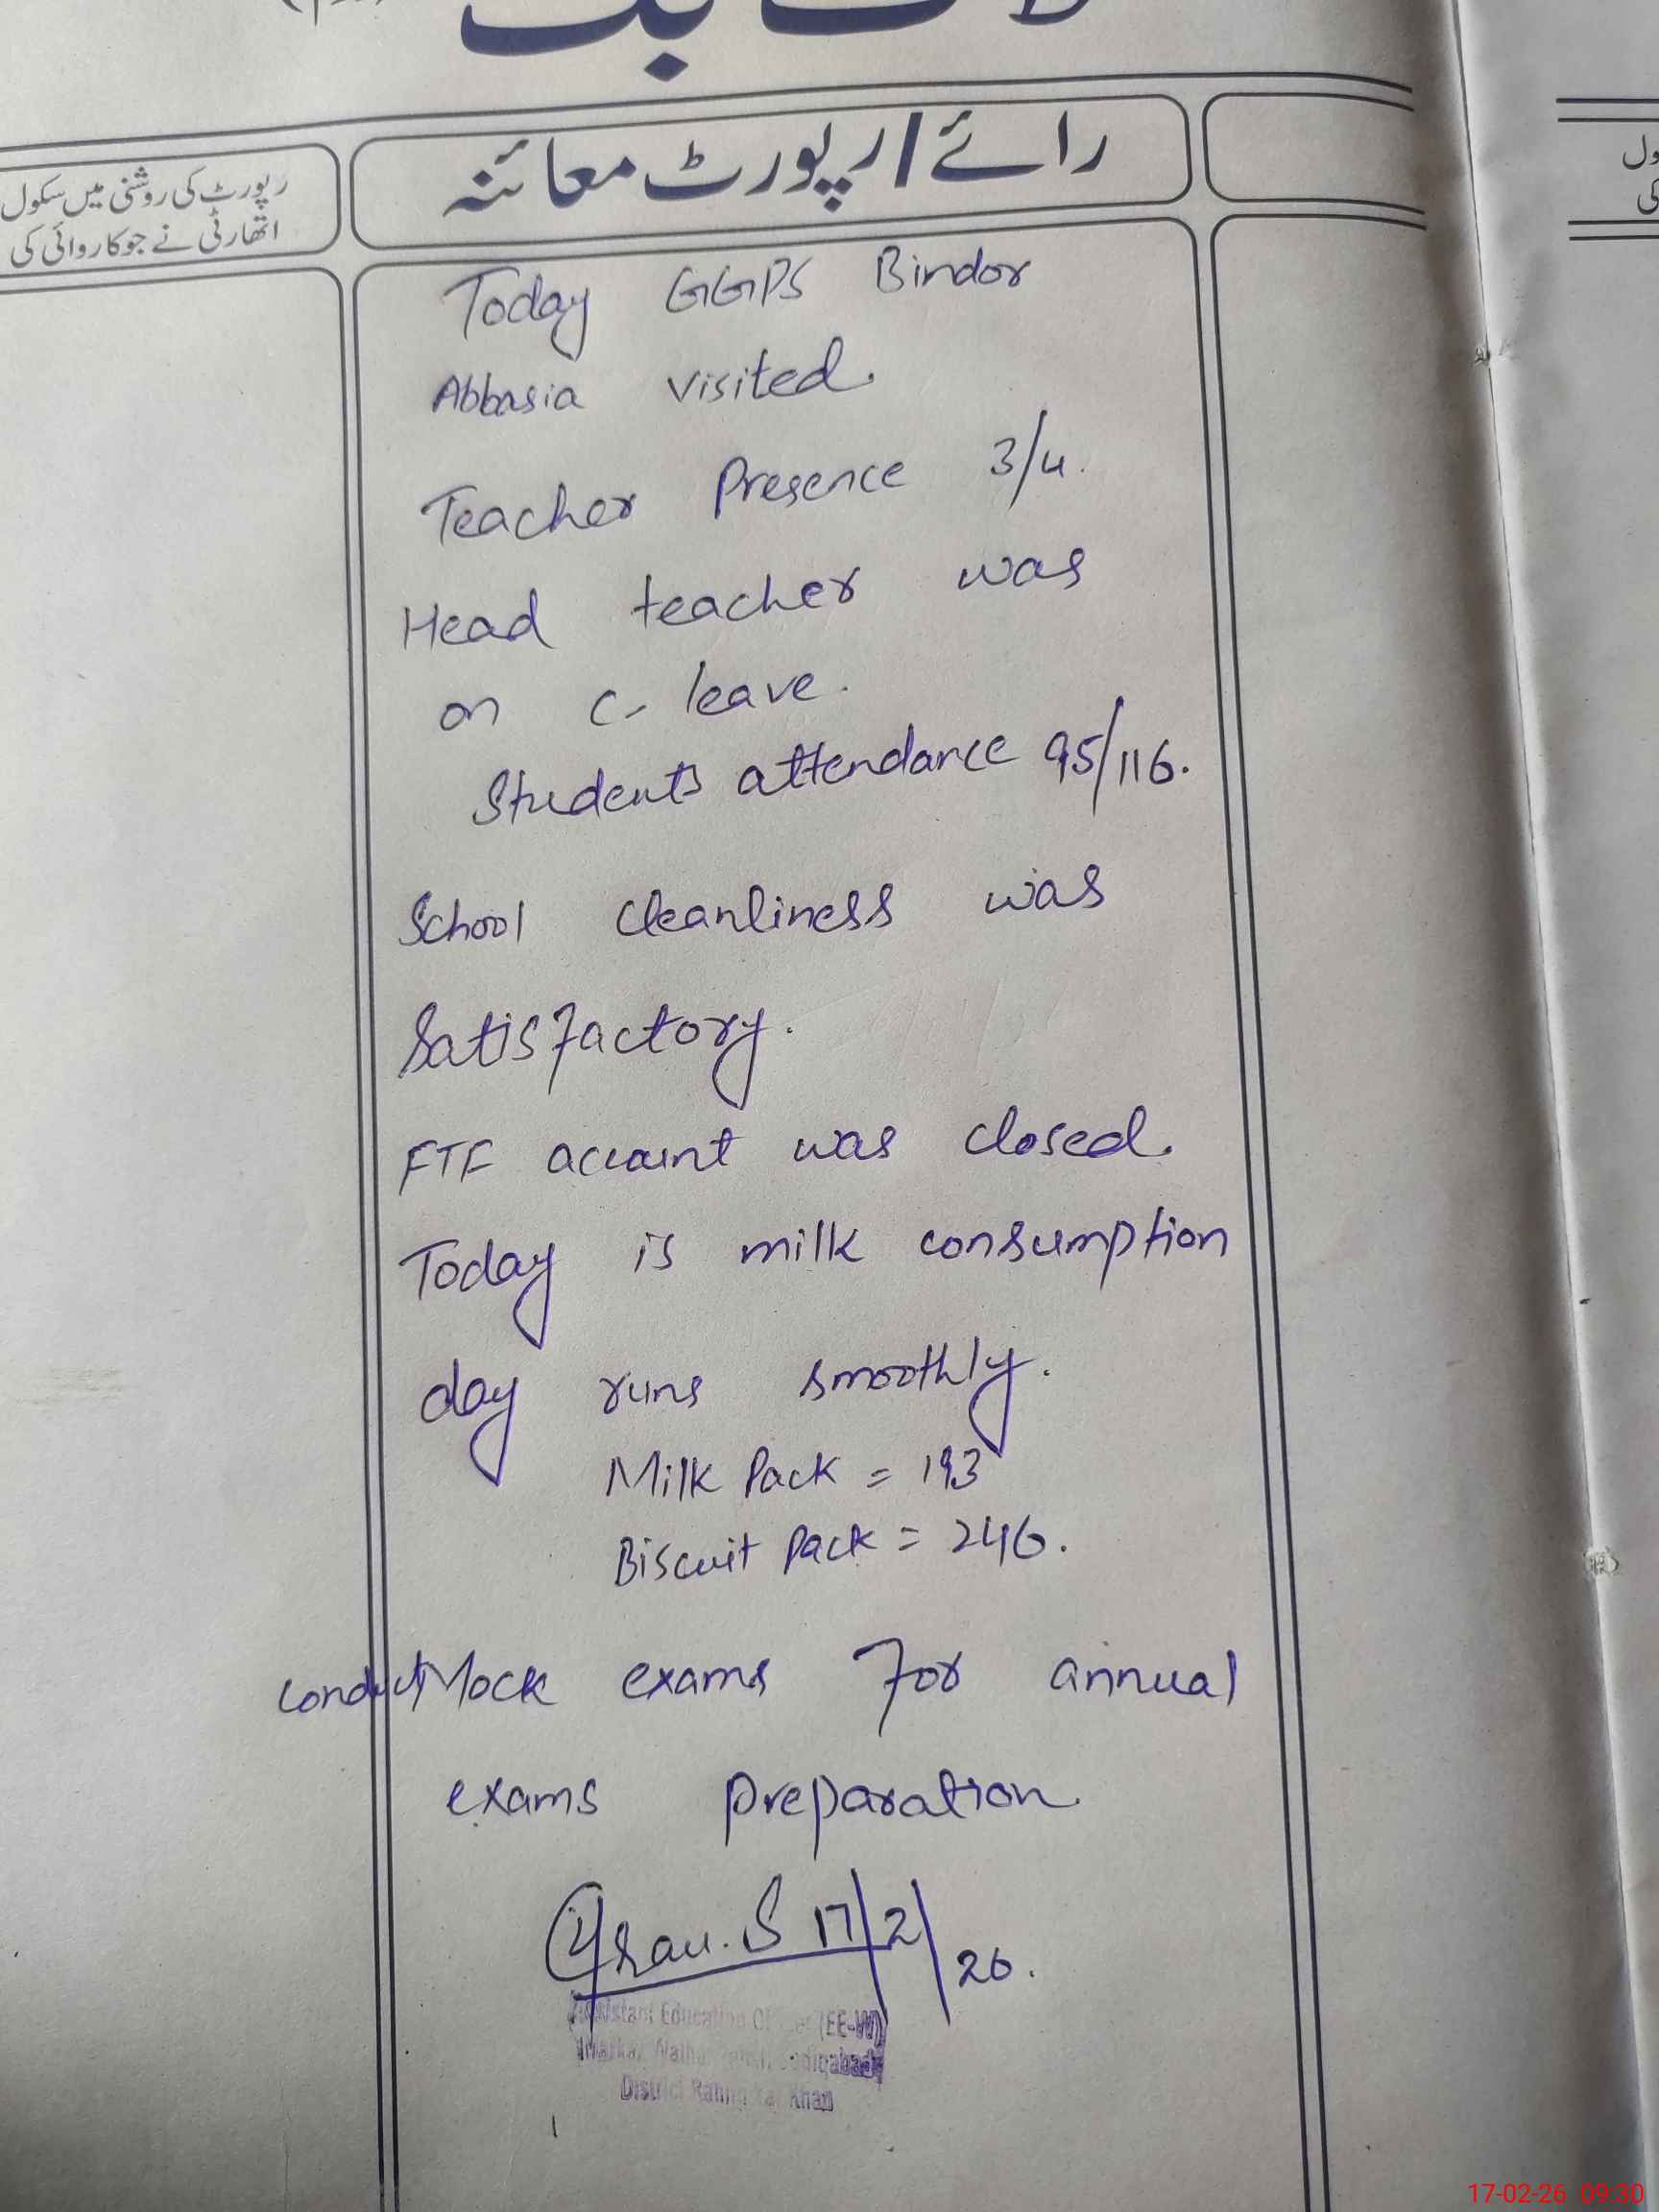 رائے / رپورٹ معائنہ
رپورٹ کی روشنی میں سکول
اتھارٹی نے جو کاروائی کی
Today GGPS Bindor
Abbasia visited.
Teacher Presence 3/4.
Head teacher was
on C- leave.
Students attendance 95/116.
School cleanliness was
Satisfactory.
FTF account was closed.
Today is milk consumption
day runs smoothly.
Milk Pack = 193
Biscuit Pack = 246.
conduct Mock exams For annual
exams preparation.
17/2/26.
Assistant Education (EE-W)
District Khan
17-02-26 09:30